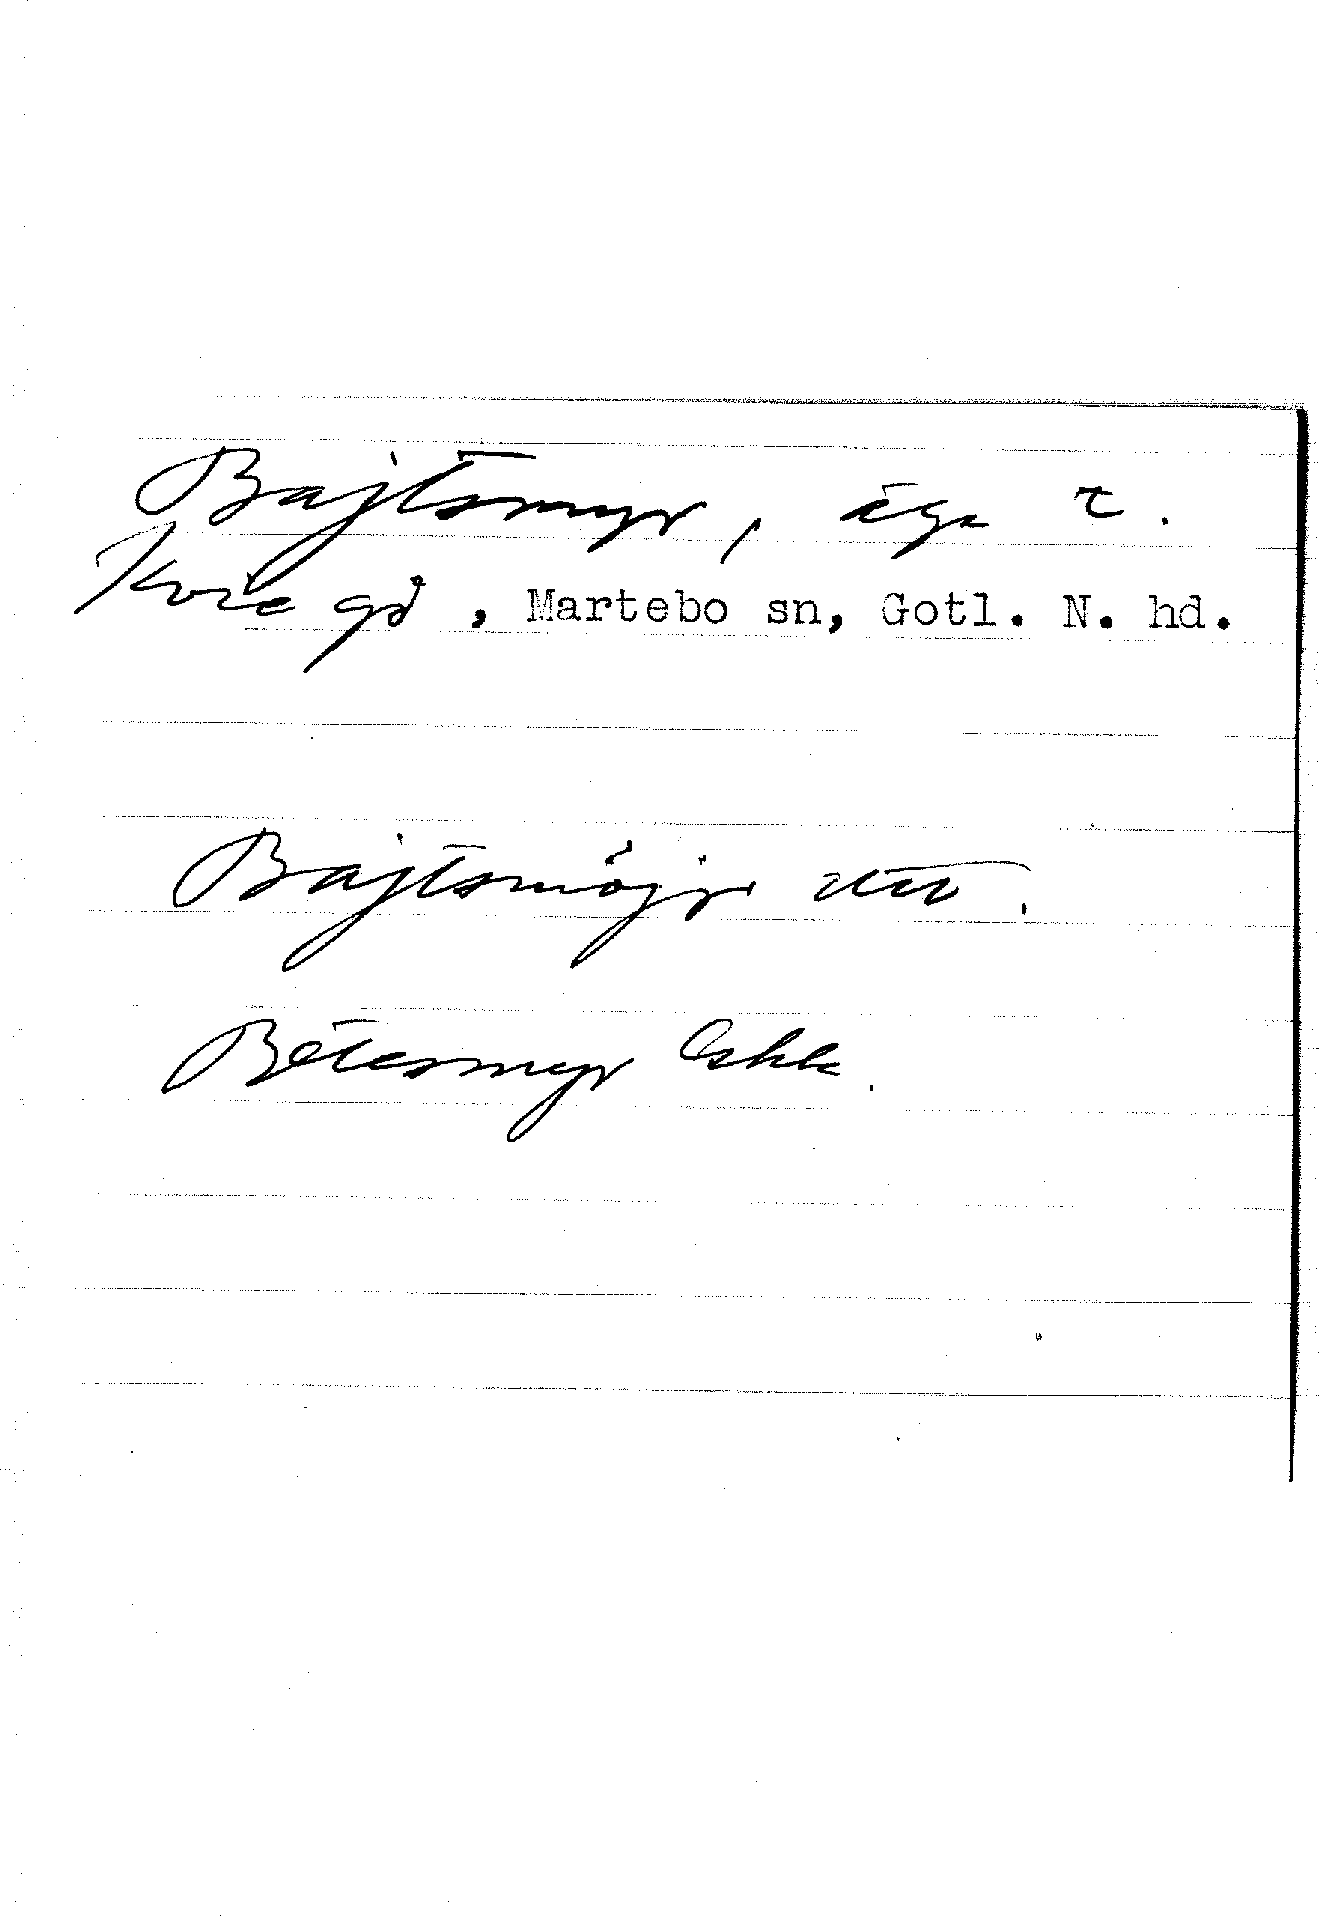 Bajtsmyr, äga t.
Kvie gd, Martebo sn, Gotl. N. hd.
Bajtsmöjr utt.
Betesmyr Eskk.